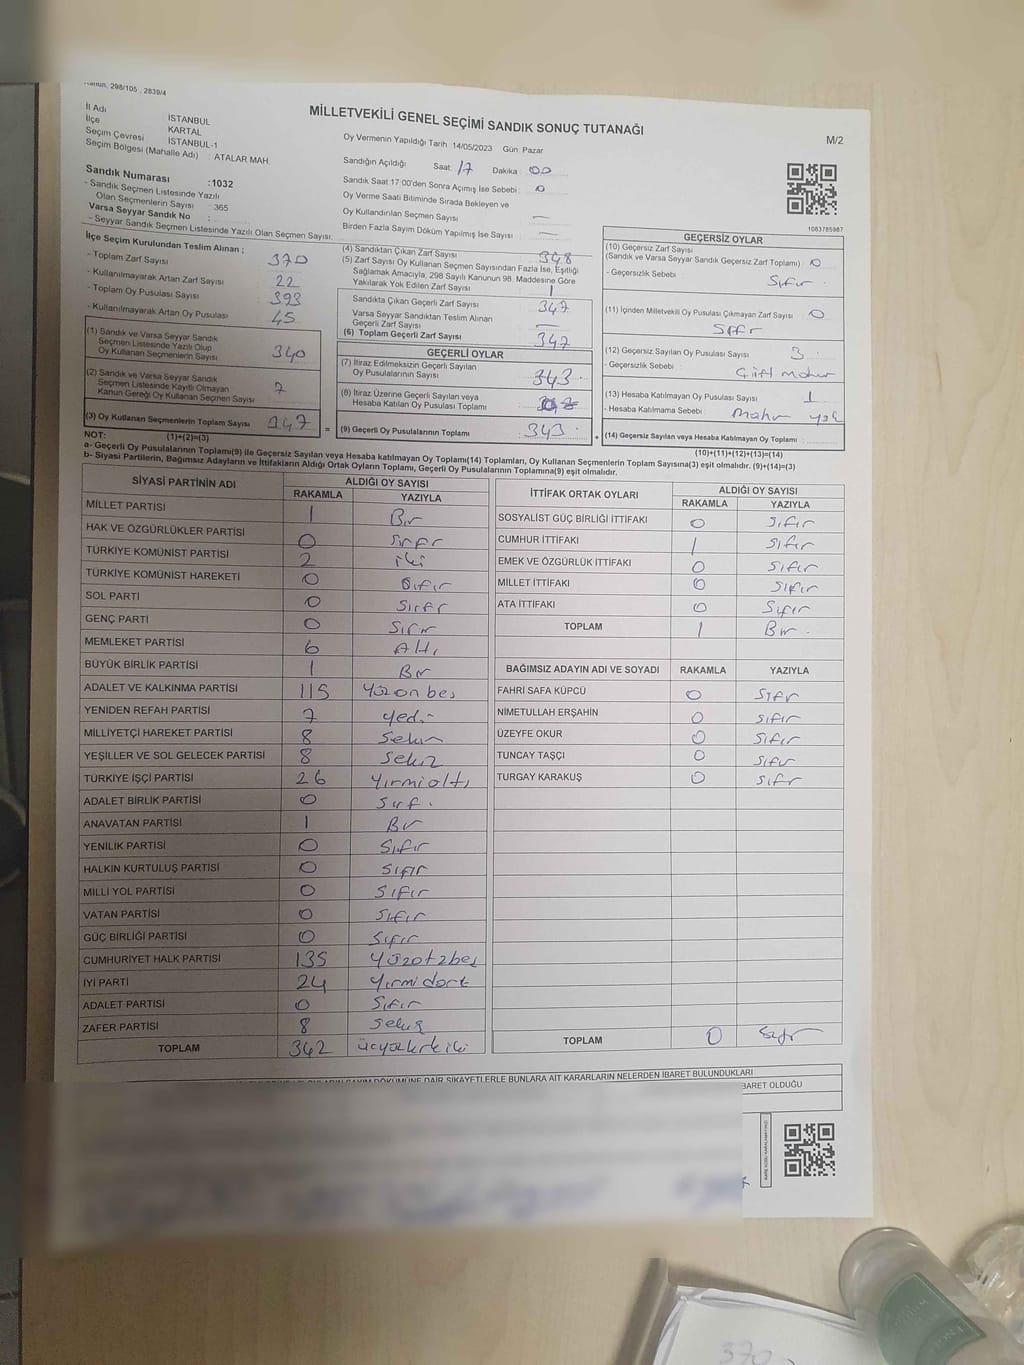 Kanun, 298/105 , 2839/4
MİLLETVEKİLİ GENEL SEÇİMİ SANDIK SONUÇ TUTANAĞI
M/2
İl Adı İSTANBUL
İlçe KARTAL
Seçim Çevresi İSTANBUL-1
Seçim Bölgesi (Mahalle Adı) : ATALAR MAH.
Sandık Numarası :1032
- Sandık Seçmen Listesinde Yazılı
Olan Seçmenlerin Sayısı : 365
Varsa Seyyar Sandık No :
- Seyyar Sandık Seçmen Listesinde Yazılı Olan Seçmen Sayısı:
Oy Vermenin Yapıldığı Tarih 14/05/2023 Gün Pazar
Sandığın Açıldığı Saat: 17 Dakika : 00
Sandık Saat 17:00'den Sonra Açımış İse Sebebi : 0
Oy Verme Saati Bitiminde Sırada Bekleyen ve
Oy Kullandırılan Seçmen Sayısı —
Birden Fazla Sayım Döküm Yapılmış İse Sayısı : —
1083785987
İlçe Seçim Kurulundan Teslim Alınan ;
- Toplam Zarf Sayısı 370
- Kullanılmayarak Artan Zarf Sayısı : 22
- Toplam Oy Pusulası Sayısı : 393
- Kullanılmayarak Artan Oy Pusulası 45
(1) Sandık ve Varsa Seyyar Sandık
Seçmen Listesinde Yazılı Olup
Oy Kullanan Seçmenlerin Sayısı 340
(2) Sandık ve Varsa Seyyar Sandık
Seçmen Listesinde Kayıtlı Olmayan
Kanun Gereği Oy Kullanan Seçmen Sayısı 7
(3) Oy Kullanan Seçmenlerin Toplam Sayısı 347
(1)+(2)=(3)
(4) Sandıktan Çıkan Zarf Sayısı 348
(5) Zarf Sayısı Oy Kullanan Seçmen Sayısından Fazla İse, Eşitliği
Sağlamak Amacıyla, 298 Sayılı Kanunun 98. Maddesine Göre
Yakılarak Yok Edilen Zarf Sayısı 1
Sandıkta Çıkan Geçerli Zarf Sayısı 347
Varsa Seyyar Sandıktan Teslim Alınan
Geçerli Zarf Sayısı —
(6) Toplam Geçerli Zarf Sayısı 347
GEÇERLİ OYLAR
(7) İtiraz Edilmeksizin Geçerli Sayılan
Oy Pusulalarının Sayısı : 343
(8) İtiraz Üzerine Geçerli Sayılan veya
Hesaba Katılan Oy Pusulası Toplamı :
= (9) Geçerli Oy Pusulalarının Toplamı : 343
GEÇERSİZ OYLAR
(10) Geçersiz Zarf Sayısı
(Sandık ve Varsa Seyyar Sandık Geçersiz Zarf Toplamı) : 0
- Geçersizlik Sebebi : Sıfır
(11) İçinden Milletvekili Oy Pusulası Çıkmayan Zarf Sayısı : 0
Sıfır
(12) Geçersiz Sayılan Oy Pusulası Sayısı : 3
- Geçersizlik Sebebi : Çift mühür
(13) Hesaba Katılmayan Oy Pusulası Sayısı : 1
- Hesaba Katılmama Sebebi : mühür yok
+ (14) Geçersiz Sayılan veya Hesaba Katılmayan Oy Toplamı :
(10)+(11)+(12)+(13)=(14)
NOT:
a- Geçerli Oy Pusulalarının Toplamı(9) ile Geçersiz Sayılan veya Hesaba katılmayan Oy Toplamı(14) Toplamları, Oy Kullanan Seçmenlerin Toplam Sayısına(3) eşit olmalıdır. (9)+(14)=(3)
b- Siyasi Partilerin, Bağımsız Adayların ve İttifakların Aldığı Ortak Oyların Toplamı, Geçerli Oy Pusulalarının Toplamına(9) eşit olmalıdır.
SİYASİ PARTİNİN ADI ALDIĞI OY SAYISI
RAKAMLA YAZIYLA
MİLLET PARTİSİ 1 Bir
HAK VE ÖZGÜRLÜKLER PARTİSİ 0 Sıfır
TÜRKİYE KOMÜNİST PARTİSİ 2 iki
TÜRKİYE KOMÜNİST HAREKETİ 0 Sıfır
SOL PARTİ 0 Sıfır
GENÇ PARTİ 0 Sıfır
MEMLEKET PARTİSİ 6 Altı
BÜYÜK BİRLİK PARTİSİ 1 Bir
ADALET VE KALKINMA PARTİSİ 115 Yüzonbeş
YENİDEN REFAH PARTİSİ 7 yedi
MİLLİYETÇİ HAREKET PARTİSİ 8 Sekiz
YEŞİLLER VE SOL GELECEK PARTİSİ 8 Sekiz
TÜRKİYE İŞÇİ PARTİSİ 26 Yırmialtı
ADALET BİRLİK PARTİSİ 0 Sıfır
ANAVATAN PARTİSİ 1 Bir
YENİLİK PARTİSİ 0 Sıfır
HALKIN KURTULUŞ PARTİSİ 0 Sıfır
MİLLİ YOL PARTİSİ 0 Sıfır
VATAN PARTİSİ 0 Sıfır
GÜÇ BİRLİĞİ PARTİSİ 0 Sıfır
CUMHURİYET HALK PARTİSİ 135 Yüzotzbeş
İYİ PARTİ 24 Yırmidört
ADALET PARTİSİ 0 Sıfır
ZAFER PARTİSİ 8 Sekiz
TOPLAM 342 üçyüzkırkiki
İTTİFAK ORTAK OYLARI ALDIĞI OY SAYISI
RAKAMLA YAZIYLA
SOSYALİST GÜÇ BİRLİĞİ İTTİFAKI 0 Sıfır
CUMHUR İTTİFAKI 1 Sıfır
EMEK VE ÖZGÜRLÜK İTTİFAKI 0 Sıfır
MİLLET İTTİFAKI 0 Sıfır
ATA İTTİFAKI 0 Sıfır
TOPLAM 1 Bir
BAĞIMSIZ ADAYIN ADI VE SOYADI RAKAMLA YAZIYLA
FAHRİ SAFA KÜPCÜ 0 Sıfır
NİMETULLAH ERŞAHİN 0 Sıfır
ÜZEYFE OKUR 0 Sıfır
TUNCAY TAŞÇI 0 Sıfır
TURGAY KARAKUŞ 0 Sıfır
TOPLAM 0 Sıfır
DÖKÜMÜNE DAİR ŞİKAYETLERLE BUNLARA AİT KARARLARIN NELERDEN İBARET BULUNDUKLARI
BARET OLDUĞU
370